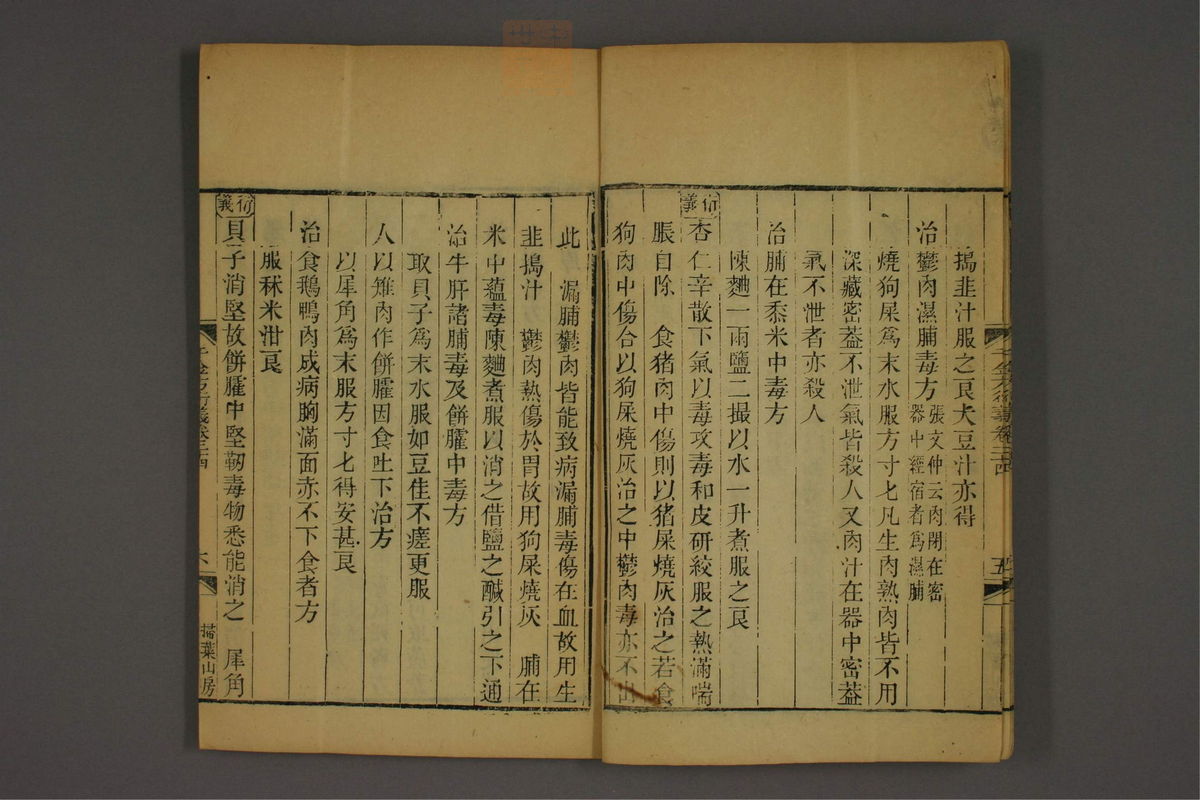 搗韭汁服之良大豆汁亦得
治鬱肉濕脯毒方張文仲云肉閉在密
器中經宿者爲濕脯
燒狗屎爲末水服方寸匕凡生肉熟肉皆不用
深藏密蓋不泄氣皆殺人又肉汁在器中密蓋
氣不泄者亦殺人
治脯在黍米中毒方
陳麯一兩鹽二撮以水一升煮服之良
衍義
杏仁辛散下氣以毒攻毒和皮研絞服之熱滿喘
脹自除 食猪肉中傷則以猪屎燒灰治之若食
狗肉中傷合以狗屎燒灰治之中鬱肉毒亦不出
千金方衍義卷二十四
五
此 漏脯鬱肉皆能致病漏脯毒傷在血故用生
韭搗汁 鬱肉熱傷於胃故用狗屎燒灰 脯在
米中蘊毒陳麯煮服以消之借鹽之鹹引之下通
治牛肝諸脯毒及餅臛中毒方
取貝子爲末水服如豆佳不瘥更服
人以雉肉作餅臛因食吐下治方
以犀角爲末服方寸匕得安甚良
治食鵝鴨肉成病胸滿面赤不下食者方
服秫米泔良
衍義
貝子消堅故餅臛中堅韌毒物悉能消之 犀角
千金方衍義卷二十四
六
掃葉山房